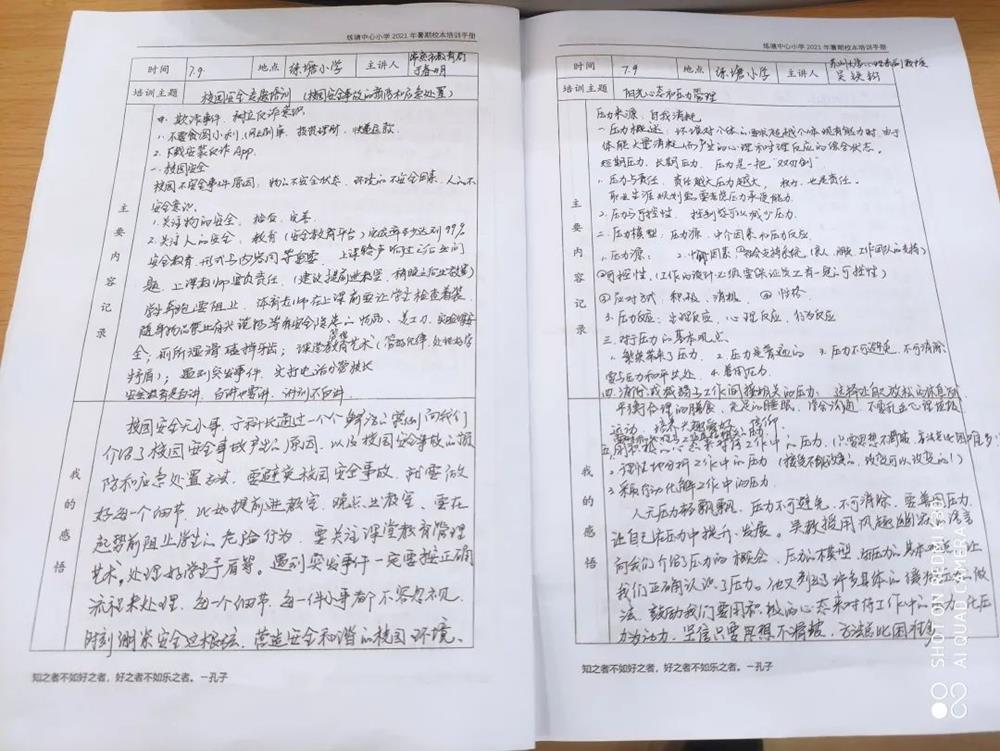 练塘中心小学2021年暑期校本培训手册
时间 7.9 地点 练塘小学 主讲人
培训主题 校园安全专题培训（校园安全事故的预防和应急处置）
主要内容记录
欺诈事件，树立反诈意识
1、不要贪图小利，网上刷单，投资理财，快递退款
2、下载安装反诈App.
一、校园安全
校园不安全事件原因：物的不安全状态、环境的不安全因素、人的不
安全意识。
1、关注物的安全，检查、完善
2、关注人的安全，教育（安全教育平台）完成率多少达到99%
安全教育，形式与内容同等重要，上课铃声响
题，上课教师要负责任（建议提前进教室，稍晚点出教室）
学生奔跑要阻止，体育老师在上课前要让学生检查着装，
随身物品禁止有尖锐的等有安全隐患的物品，美工刀，实验课安
全；厕所湿滑磕掉牙齿；课堂教育管理艺术（管好纪律，处理好学
生矛盾）；遇到突发事件，先打电话分管校长
安全教育是白讲，白讲也要讲，讲到不白讲
我的感悟
校园安全无小事，于科长通过一个个鲜活的案例向我们
介绍了校园安全事故产生的原因，以及校园安全事故的预
防和应急处置方法，要避免校园安全事故，就需要做
好每一个细节，比如提前进教室，晚点出教室，要在
起势前阻止学生的危险行为，要关注课堂教育管理
艺术，处理好学生矛盾等。遇到突发事件一定要按正确
流程来处理，每一个细节，每一件小事都不容忽视，
时刻绷紧安全这根弦，营造安全和谐的校园环境、
知之者不如好之者，好之者不如乐之者。—孔子
练塘中心小学2021年暑期校本培训手册
时间 7.9 地点 练塘小学 主讲人
培训主题 阳光心态和压力管理
主要内容记录
压力来源，自我消耗
一、压力概述：环境对个体的要求超越个体现有能力时，由于
体能大量消耗而产生的心理和生理反应的综合状态。
短期压力、长期压力，压力是一把“双刃剑”
1、压力与责任，责任越大压力越大，权力，也是责任。
职业生涯规划要考虑压力承受能力
2、压力与可控性，控制感可以减少压力
二、压力模型：压力源，中介因素和压力反应
1、压力源： 2、中介因素①社会支持系统（家人、朋友、工作团队的支持）
②可控性，（工作的设计必须要保证员工有一定的可控性）
③应对方式，积极、消极，④性格
3、压力反应：生理反应，心理反应，行为反应
三、对于压力的基本观点
1、繁荣带来了压力，2、压力是普遍的 3、压力不可避免，不可消除，
需与压力和平共处 4、善用压力
四、消除或减弱与工作间接相关的压力：选择让你放松的休息
平衡合理的膳食，充足的睡眠，学会沟通，不要死
运动，培养大趣爱好，信仰
五、用积极的心态来对待工作中的压力，（只要思想不滑坡，方法总比困难多！）
2、理性地分析工作中的压力（接受不能改变的，改变可以改变的！）
3、采取行动化解工作中的压力
我的感悟
人无压力轻飘飘，压力不可避免，不可消除，要善用压力，
让自己在压力中提升、发展。吴教授用风趣幽默的语言
向我们介绍了压力的概念，压力的模型，对压力的基本观点，让
我们正确认识了压力。他又列出了许多具体的缓解压力的做
法，鼓励我们要用积极的心态来对待工作中的压力，化压
力为动力，坚信只要思想不滑坡，方法总比困难多
知之者不如好之者，好之者不如乐之者。—孔子
SHOT ON REDMI K30
AI QUAD CAMERA